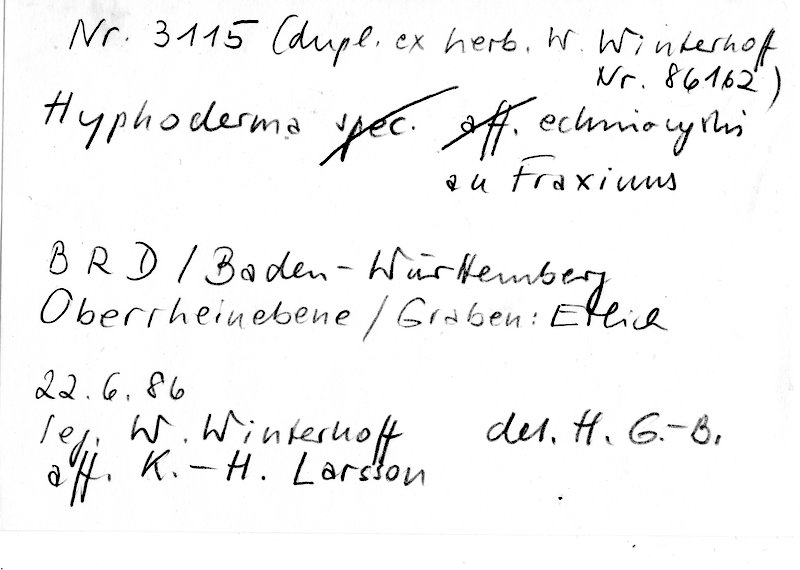 Nr. 3115 (dupl. ex herb. W. Winterhoff
Nr. 86162)
Hyphoderma spec. aff. echinocystis
an Fraxinus
BRD / Baden-Württemberg
Oberrheinebene / Graben: Erlich
22.6.86
leg. W. Winterhoff det. H. G.-B.
aff. K.-H. Larsson